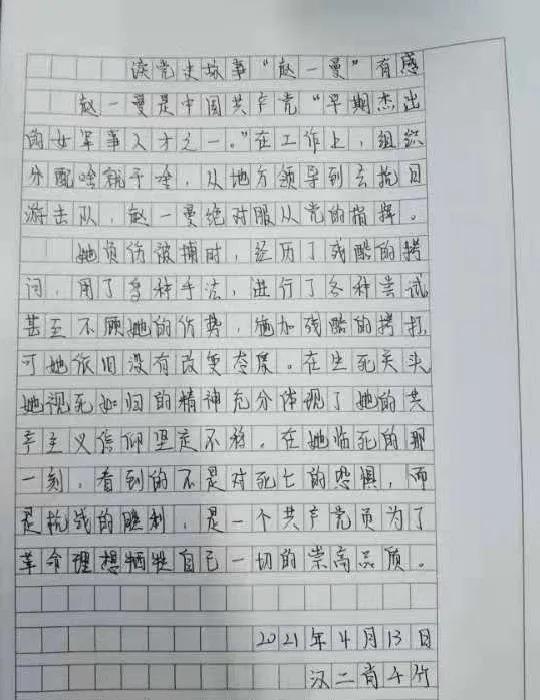 读党史故事“赵一曼”有感
赵一曼是中国共产党“早期杰出
的女军事人才之一。”在工作上，组织
分配啥就干啥，从地方领导到去抗日
游击队，赵一曼绝对服从党的指挥。
她负伤被捕时，经历了残酷的拷
问，用了多种手法，进行了各种尝试
甚至不顾她的伤势，施加残酷的拷打
可她依旧没有改变态度。在生死关头
她视死如归的精神充分体现了她的共
产主义信仰坚定不移，在她临死的那
一刻，看到的不是对死亡的恐惧，而
是抗战的胜利，是一个共产党员为了
革命理想牺牲自己一切的崇高品质。
2021年4月13日
汉二